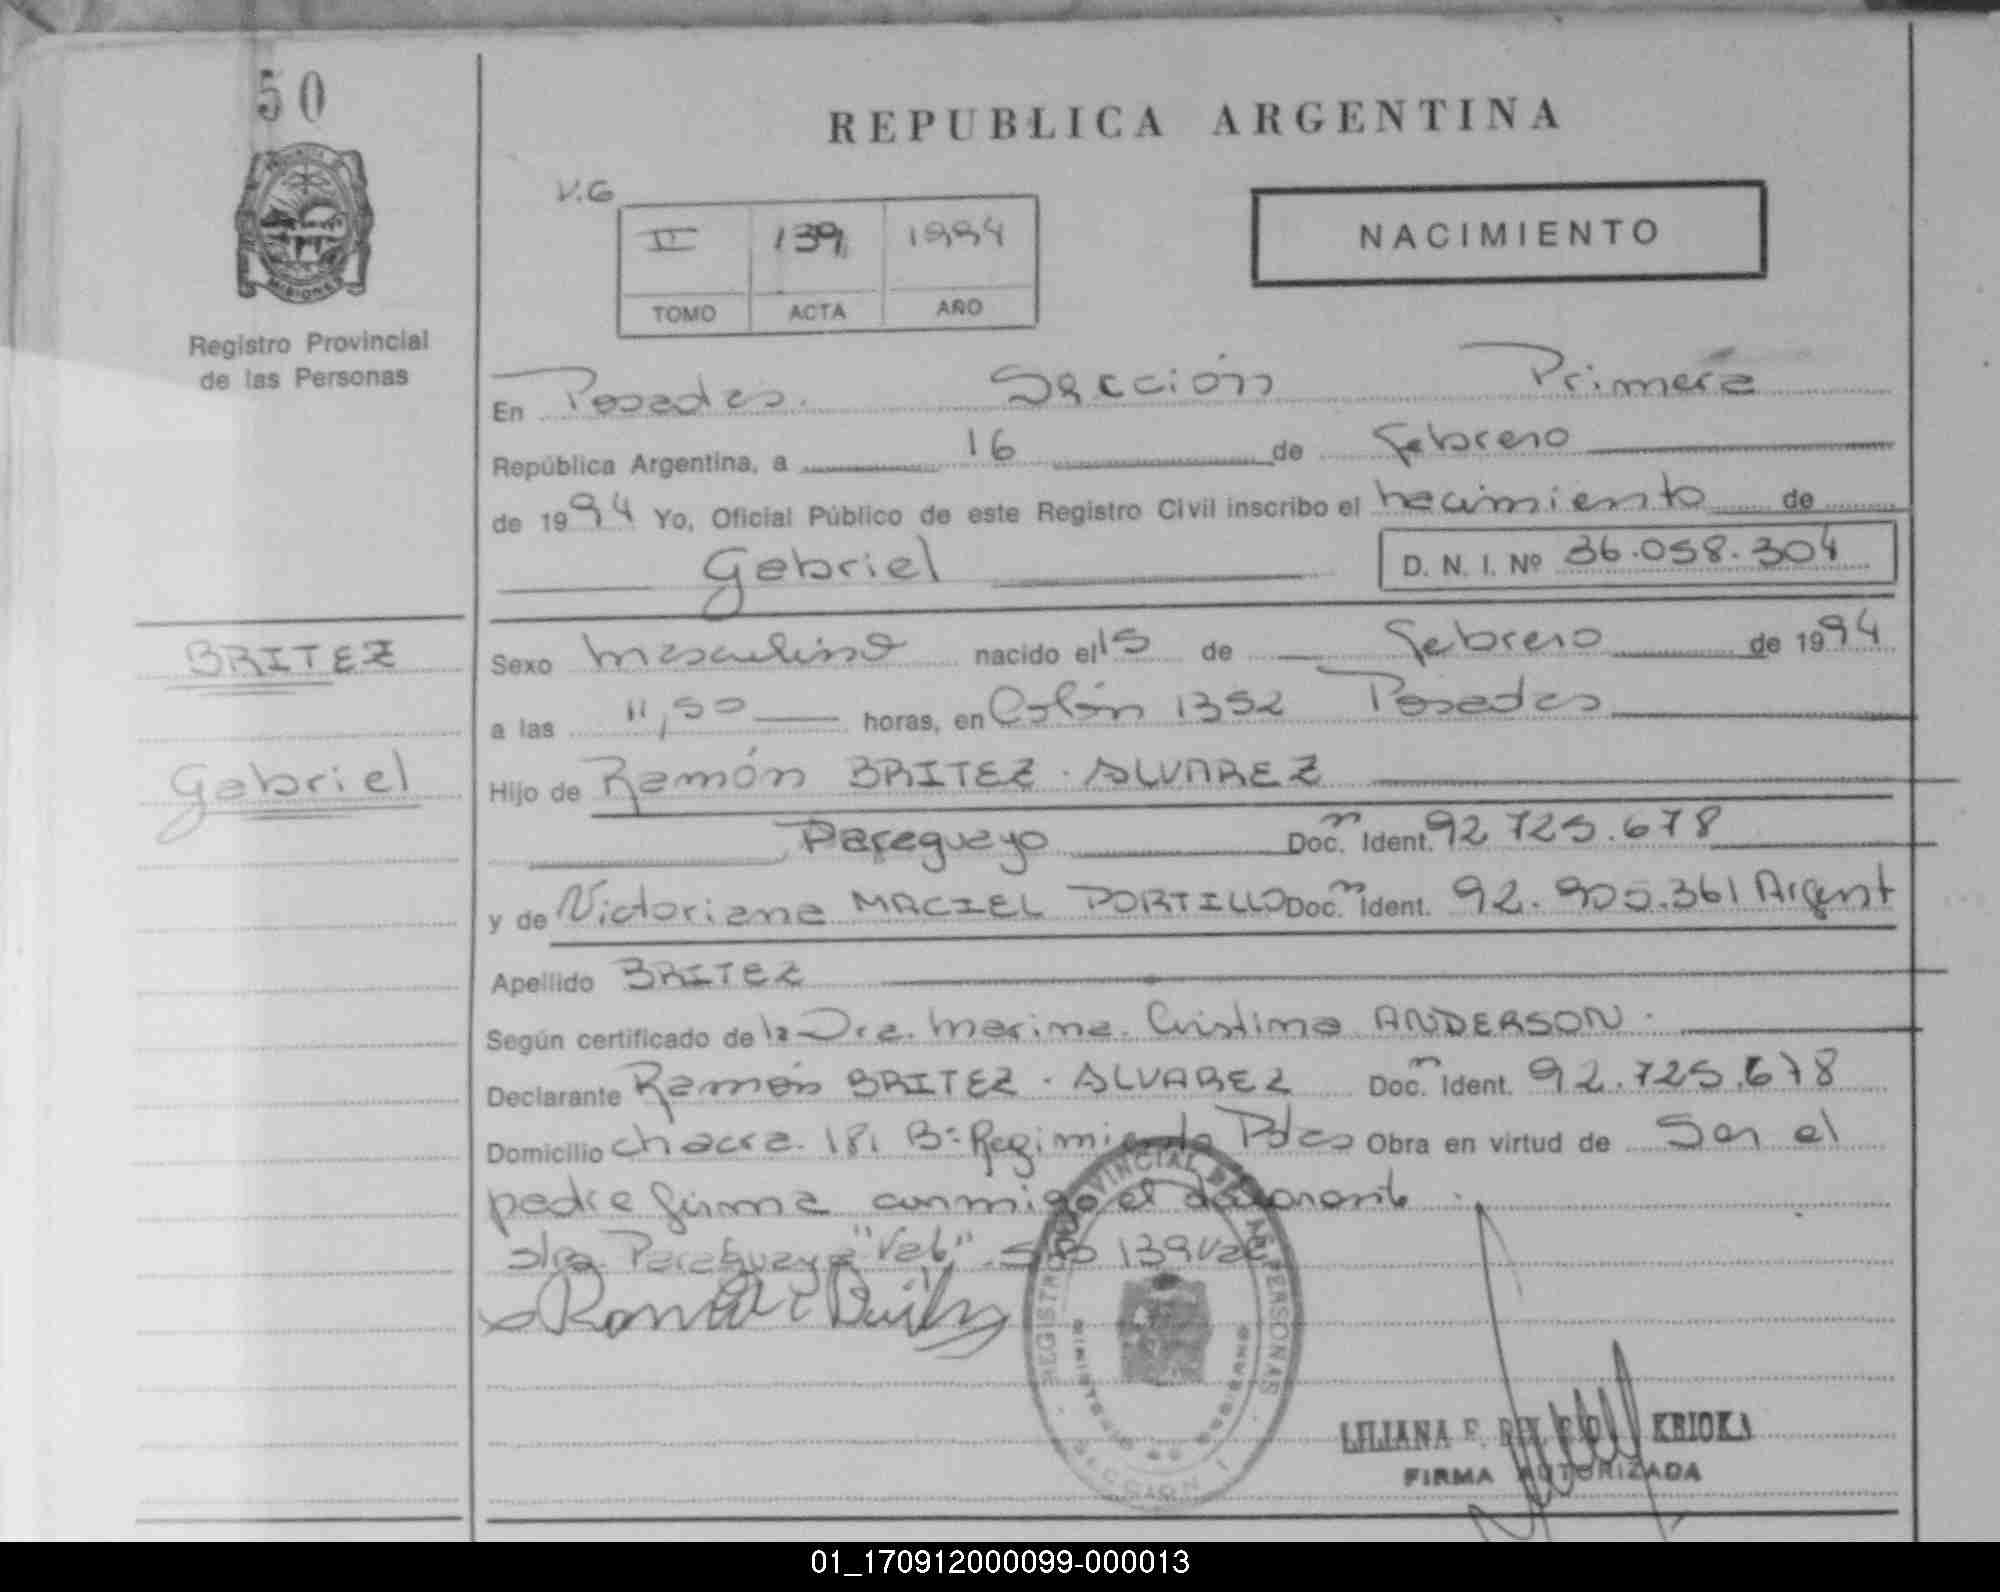 50
REPUBLICA ARGENTINA
V.G
II 139 1994
TOMO ACTA AÑO
NACIMIENTO
MISIONES
Registro Provincial
de las Personas
En Posadas. Sección Primera
República Argentina, a 16 de febrero
de 1994 Yo, Oficial Público de este Registro Civil inscribo el nacimiento de
Gabriel D. N. I. Nº 36.058.304
BRITEZ
Sexo masculino nacido el 15 de febrero de 1994
a las 11,50 horas, en Colón 1352 Posadas
Gabriel
Hijo de Ramón BRITEZ - ALVAREZ
Paraguayo Doc. Ident. 92 725.678
y de Victoriana MACIEL PORTILLO Doc. Ident. 92.905.361 Argent
Apellido BRITEZ
Según certificado de la Dra. Marina Cristina ANDERSON.
Declarante Ramón BRITEZ - ALVAREZ Doc. Ident. 92.725.678
Domicilio Chacra 181 Bº Regimiento Pdas Obra en virtud de Ser el
padre firma conmigo el declarante.
Paraguaya "Vale" 139 Vale
REGISTRO PROVINCIAL DE LAS PERSONAS
MINISTERIO DE GOBIERNO
SECCION 1
LILIANA F. KRIOKA
FIRMA AUTORIZADA
01_170912000099-000013